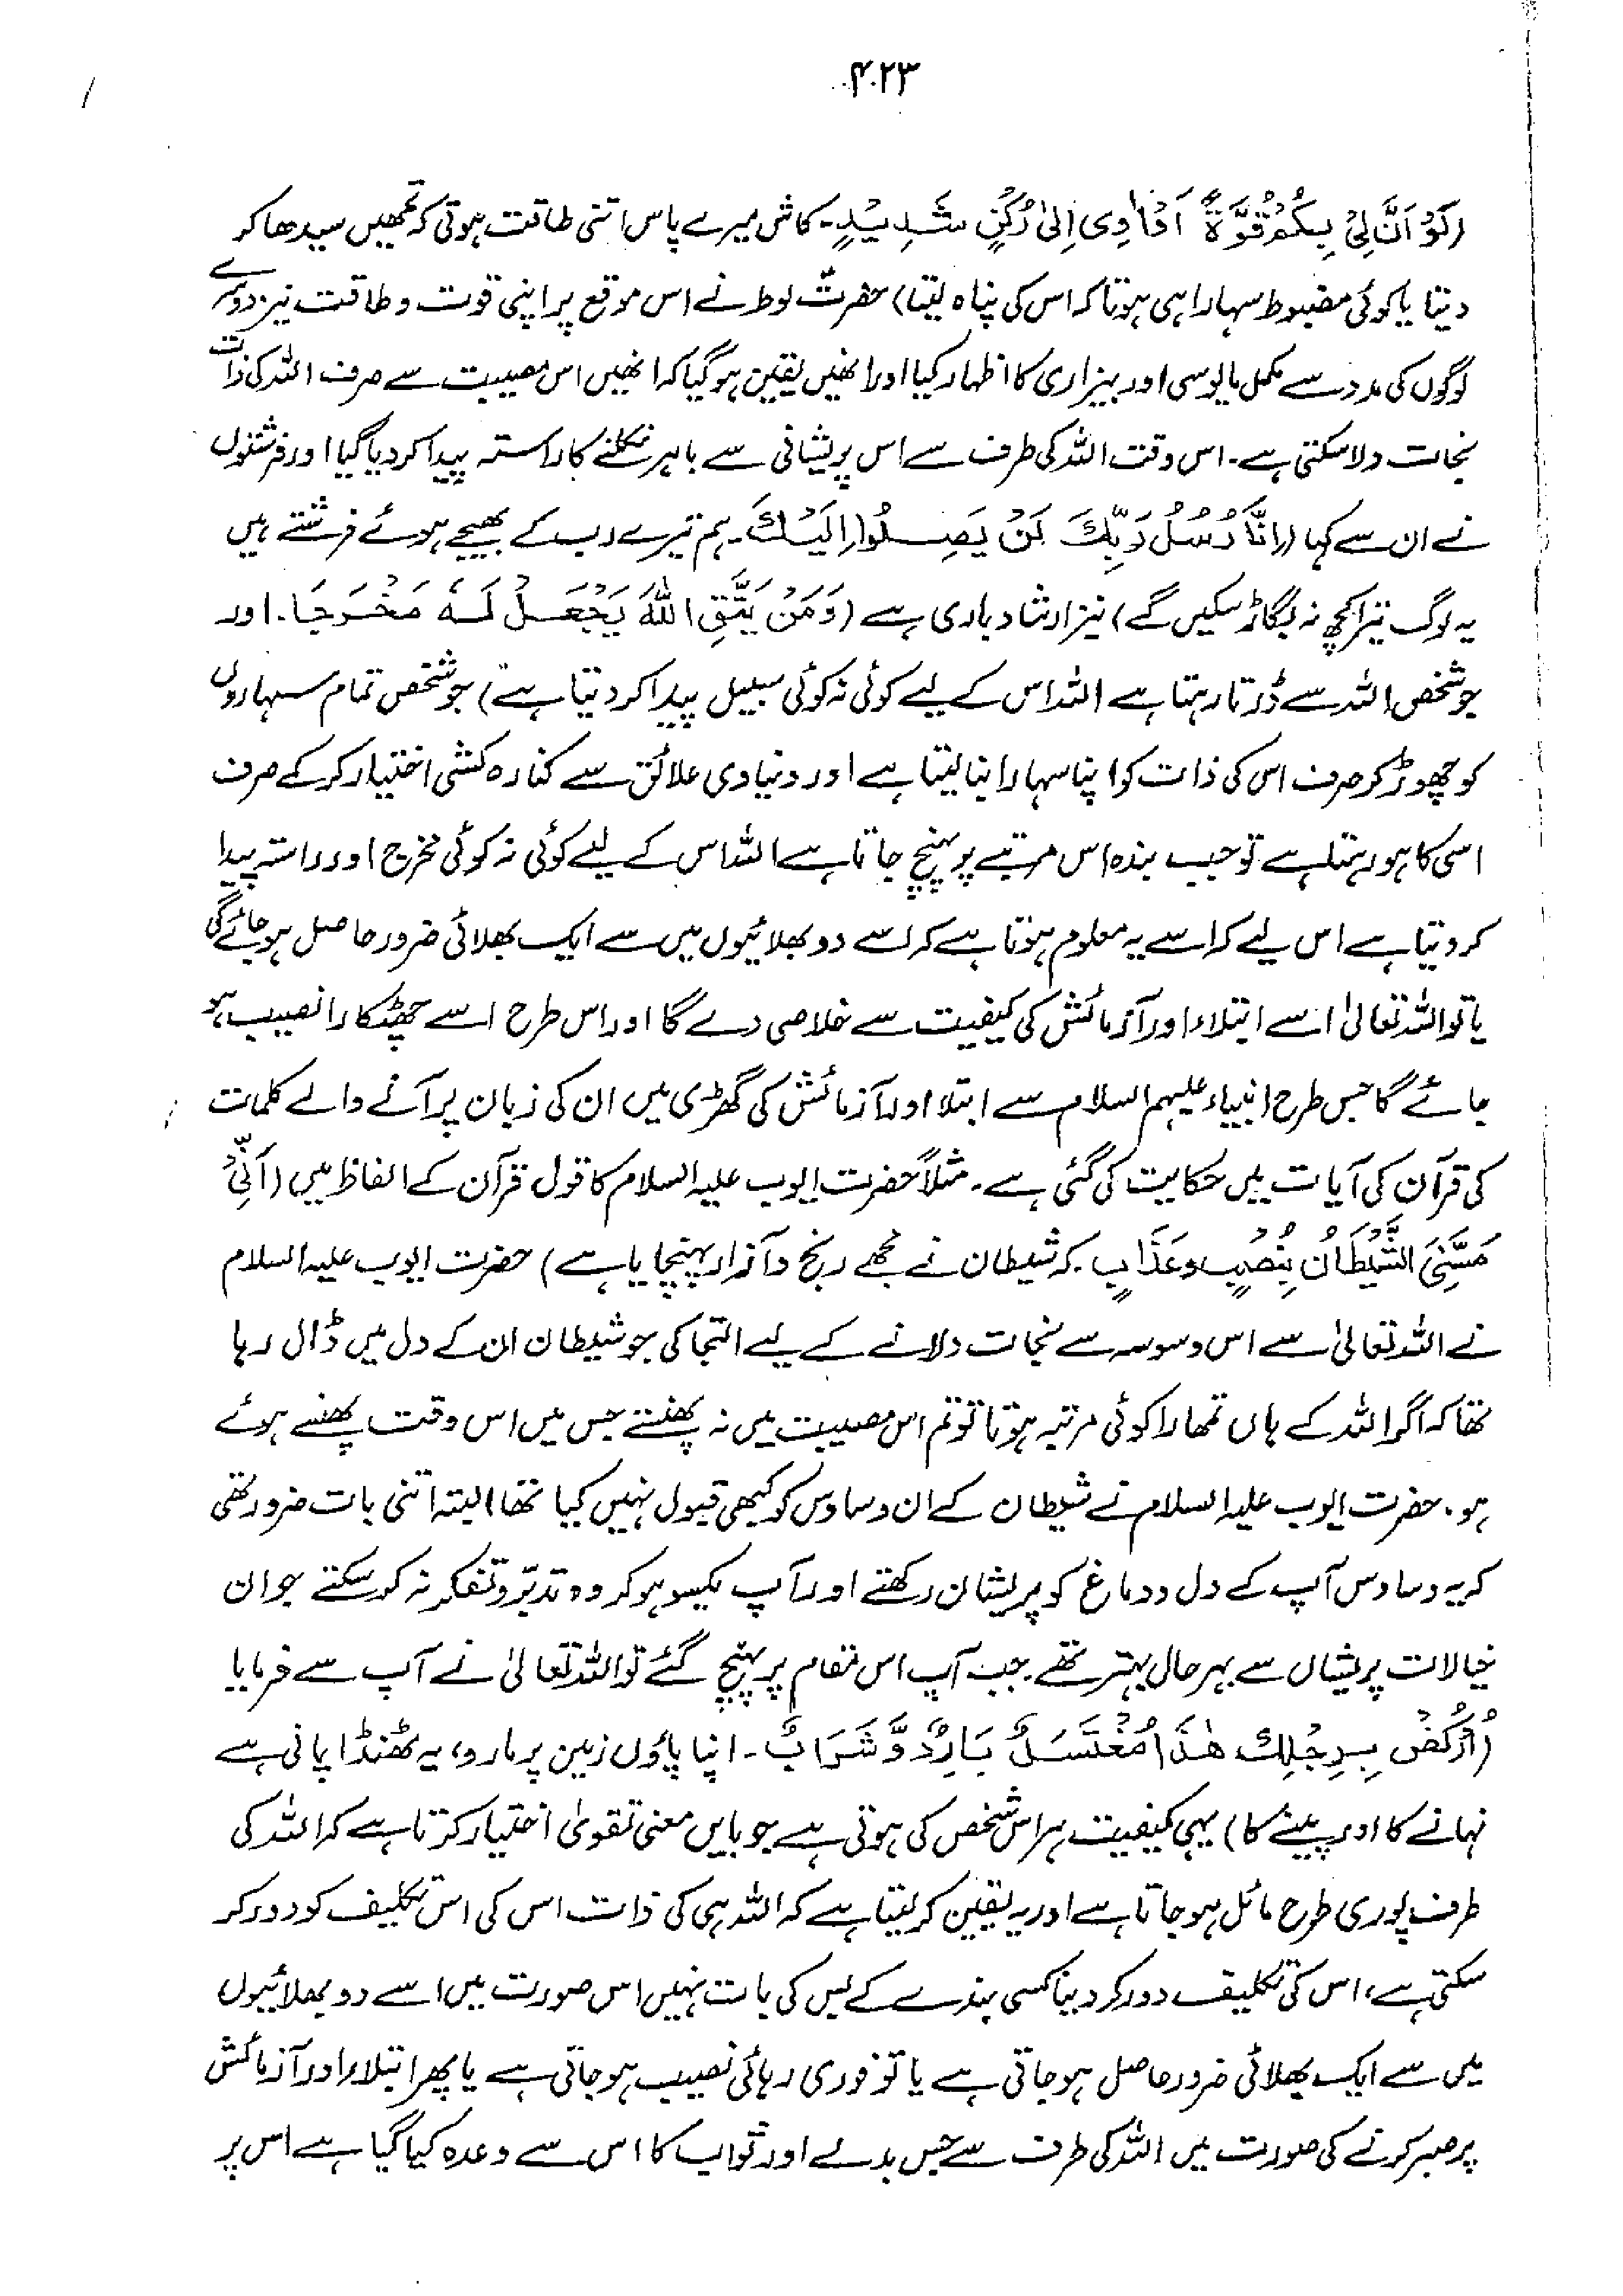 ۴۲۳
(لَوْ اَنَّ لِیْ بِكُمْ قُوَّةً اَوْ اٰوِیْ اِلیٰ رُكْنٍ شَدِیْدٍ۔ کاش میرے پاس اتنی طاقت ہوتی کہ تمھیں سیدھا کر
دیتا یا کوئی مضبوط سہارا ہی ہوتا کہ اس کی پناہ لیتا) حضرت لوط نے اس موقع پر اپنی قوت و طاقت نیز دوسرے
لوگوں کی مدد سے مکمل مایوسی اور بیزاری کا اظہار کیا اور انھیں یقین ہوگیا کہ انھیں اس مصیبت سے صرف اللہ کی ذات
نجات دلاسکتی ہے۔ اس وقت اللہ کی طرف سے اس پریشانی سے باہر نکلنے کا راستہ پیدا کردیا گیا اور فرشتوں
نے ان سے کہا (اِنَّا رُسُلُ رَبِّكَ لَنْ یَصِلُوا اِلَیْكَ۔ ہم تیرے رب کے بھیجے ہوئے فرشتے ہیں
یہ لوگ تیرا کچھ نہ بگاڑ سکیں گے) نیز ارشاد باری ہے (وَمَنْ یَتَّقِ اللهَ یَجْعَلْ لَهٗ مَخْرَجًا۔ اور
جو شخص اللہ سے ڈرتا رہتا ہے اللہ اس کے لیے کوئی نہ کوئی سبیل پیدا کر دیتا ہے) جو شخص تمام سہاروں
کو چھوڑ کر صرف اس کی ذات کو اپنا سہارا بنا لیتا ہے اور دنیاوی علائق سے کنارہ کشی اختیار کرکے صرف
اسی کا ہو رہتا ہے تو جب بندہ اس مرتبے پر پہنچ جاتا ہے اللہ اس کے لیے کوئی نہ کوئی مخرج اور راستہ پیدا
کر دیتا ہے اس لیے کہ اسے یہ معلوم ہوتا ہے کہ اسے دو بھلائیوں میں سے ایک بھلائی ضرور حاصل ہوجائے گی
یا تو اللہ تعالیٰ اسے ابتلاء اور آزمائش کی کیفیت سے خلاصی دے گا اور اس طرح اسے چھٹکارا نصیب ہو
جائے گا جس طرح انبیاء علیہم السلام سے ابتلا اور آزمائش کی گھڑی میں ان کی زبان پر آنے والے کلمات
کی قرآن کی آیات میں حکایت کی گئی ہے۔ مثلاً حضرت ایوب علیہ السلام کا قول قرآن کے الفاظ میں (اَنِّیْ
مَسَّنِیَ الشَّیْطَانُ بِنُصْبٍ وعَذَابٍ۔ کہ شیطان نے مجھے رنج و آزار پہنچایا ہے) حضرت ایوب علیہ السلام
نے اللہ تعالیٰ سے اس وسوسہ سے نجات دلانے کے لیے التجا کی جو شیطان ان کے دل میں ڈال رہا
تھا کہ اگر اللہ کے ہاں تمھارا کوئی مرتبہ ہوتا تو تم اس مصیبت میں نہ پھنستے جس میں اس وقت پھنسے ہوئے
ہو۔ حضرت ایوب علیہ السلام نے شیطان کے ان وساوس کو کبھی قبول نہیں کیا تھا البتہ اتنی بات ضرور تھی
کہ یہ وساوس آپ کے دل ودماغ کو پریشان رکھتے اور آپ یکسو ہوکر وہ تدبّر وتفکر نہ کرسکتے جو ان
خیالات پریشاں سے بہرحال بہتر تھے۔ جب آپ اس مقام پر پہنچ گئے تو اللہ تعالیٰ نے آپ سے فرمایا
(اُرْكُضْ بِرِجْلِكَ هٰذَا مُغْتَسَلٌ بَارِدٌ وَّشَرَابٌ۔ اپنا پاؤں زمین پر مارو، یہ ٹھنڈا پانی ہے
نہانے کا اور پینے کا) یہی کیفیت ہر اس شخص کی ہوتی ہے جو بایں معنی تقویٰ اختیار کرتا ہے کہ اللہ کی
طرف پوری طرح مائل ہوجاتا ہے اور یہ یقین کرلیتا ہے کہ اللہ ہی کی ذات اس کی اس تکلیف کو دور کر
سکتی ہے، اس کی تکلیف دور کردینا کسی بندے کے بس کی بات نہیں اس صورت میں اسے دو بھلائیوں
میں سے ایک بھلائی ضرور حاصل ہوجاتی ہے یا تو فوری رہائی نصیب ہوجاتی ہے یا پھر ابتلاء اور آزمائش
پر صبر کرنے کی صورت میں اللہ کی طرف سے جس بدلے اور ثواب کا اس سے وعدہ کیا گیا ہے اس پر